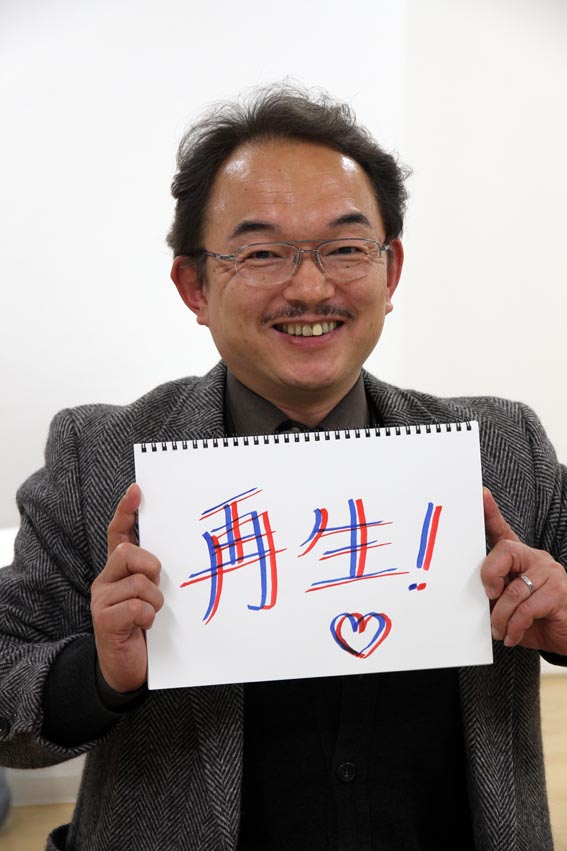 再生!
♡